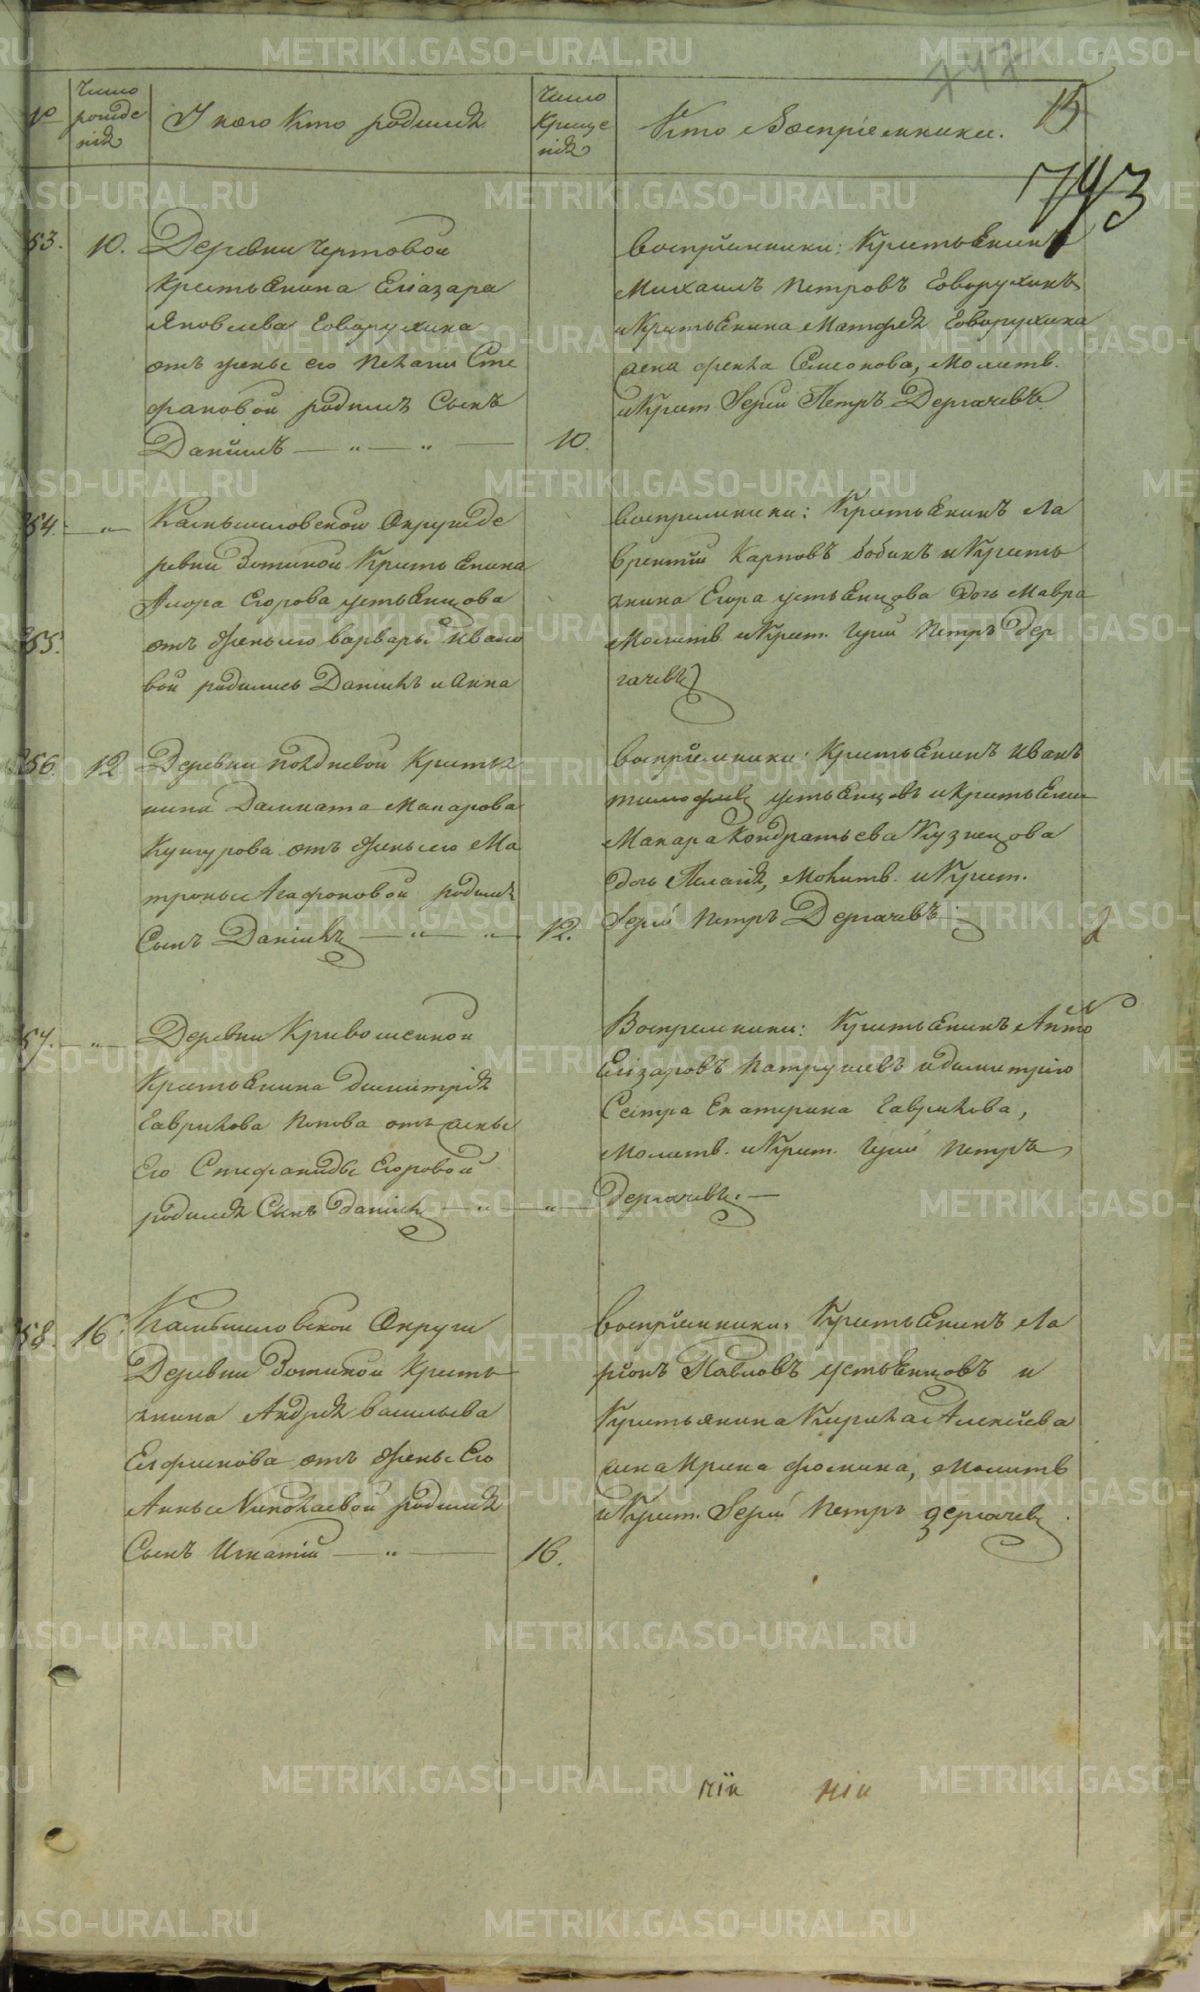 15
793
№
Число
рожде
нія
У кого Кто родился
Число
Креще
нія
Кто Воспріемники.
53.
10.
Деревни Чертовой
крестьянина Елиазара
Яковлева Говорухина
отъ жены его Пелагии Сте
фановой родился Сынъ
Даніилъ — „ — „ —
10.
воспріемники: Крестьянинъ
Михаилъ Петровъ Говорухинъ
и Крестьянина Матфея Говорухина
жена Семенова, Молитв.
и Крест. Іерей Петръ Дергачевъ
54. — „ —
55.
Камышловской Округи де
ревни Зотиной Крестьянина
Егорова устьянцова
отъ жены его варвары Ивано
вой родились Даніилъ и Анна
воспріемники: Крестьянинъ Ла
врентій Карповъ бобинъ и Кресть
янина Егора устьянцова дочь Мавра
Молитв. и Крест. Іерей Петръ Дер
гачевъ
256.
12
Деревни Крестья
нина Далмата Макарова
Кунгурова отъ жены его Ма
троны Агафоновой родился
Сынъ Даніилъ — „ — „ —
12.
воспріемники: Крестьянинъ Иванъ
тимофеев устьянцовъ и крестьянин
Макара Кондратьева Кузнецова
дочь Пелагія, Молитв. и Крест.
Іерей Петръ Дергачевъ
57. — „ —
Деревни Кривошеиной
Крестьянина Димитрія
Гаврилова Попова отъ жены
Его Стефаниды Егоровой
родился Сынъ Даніилъ — „ — „ —
Воспріемники: Крестьянинъ Анто
Елизаровъ Патрушевъ и димитрію
Сестра Екатерина Гаврилова,
Молитв. и Крест. Іерей Петръ
Дергачевъ. —
58.
16.
Камышловской Округи
Деревни Зотиной Кресть
янина Андрея васильева
Елфимова отъ жены Его
Анны Николаевой родился
Сынъ Игнатій — „ —
16.
воспріемники: Крестьянинъ Ла
ріонъ Павловъ устьянцовъ и
Крестьянина Кирила Алексеева
жена Ирина фомина, Молитв
и Крест. Іерей Петръ дергачев
ній ній
METRIKI.GASO-URAL.RU